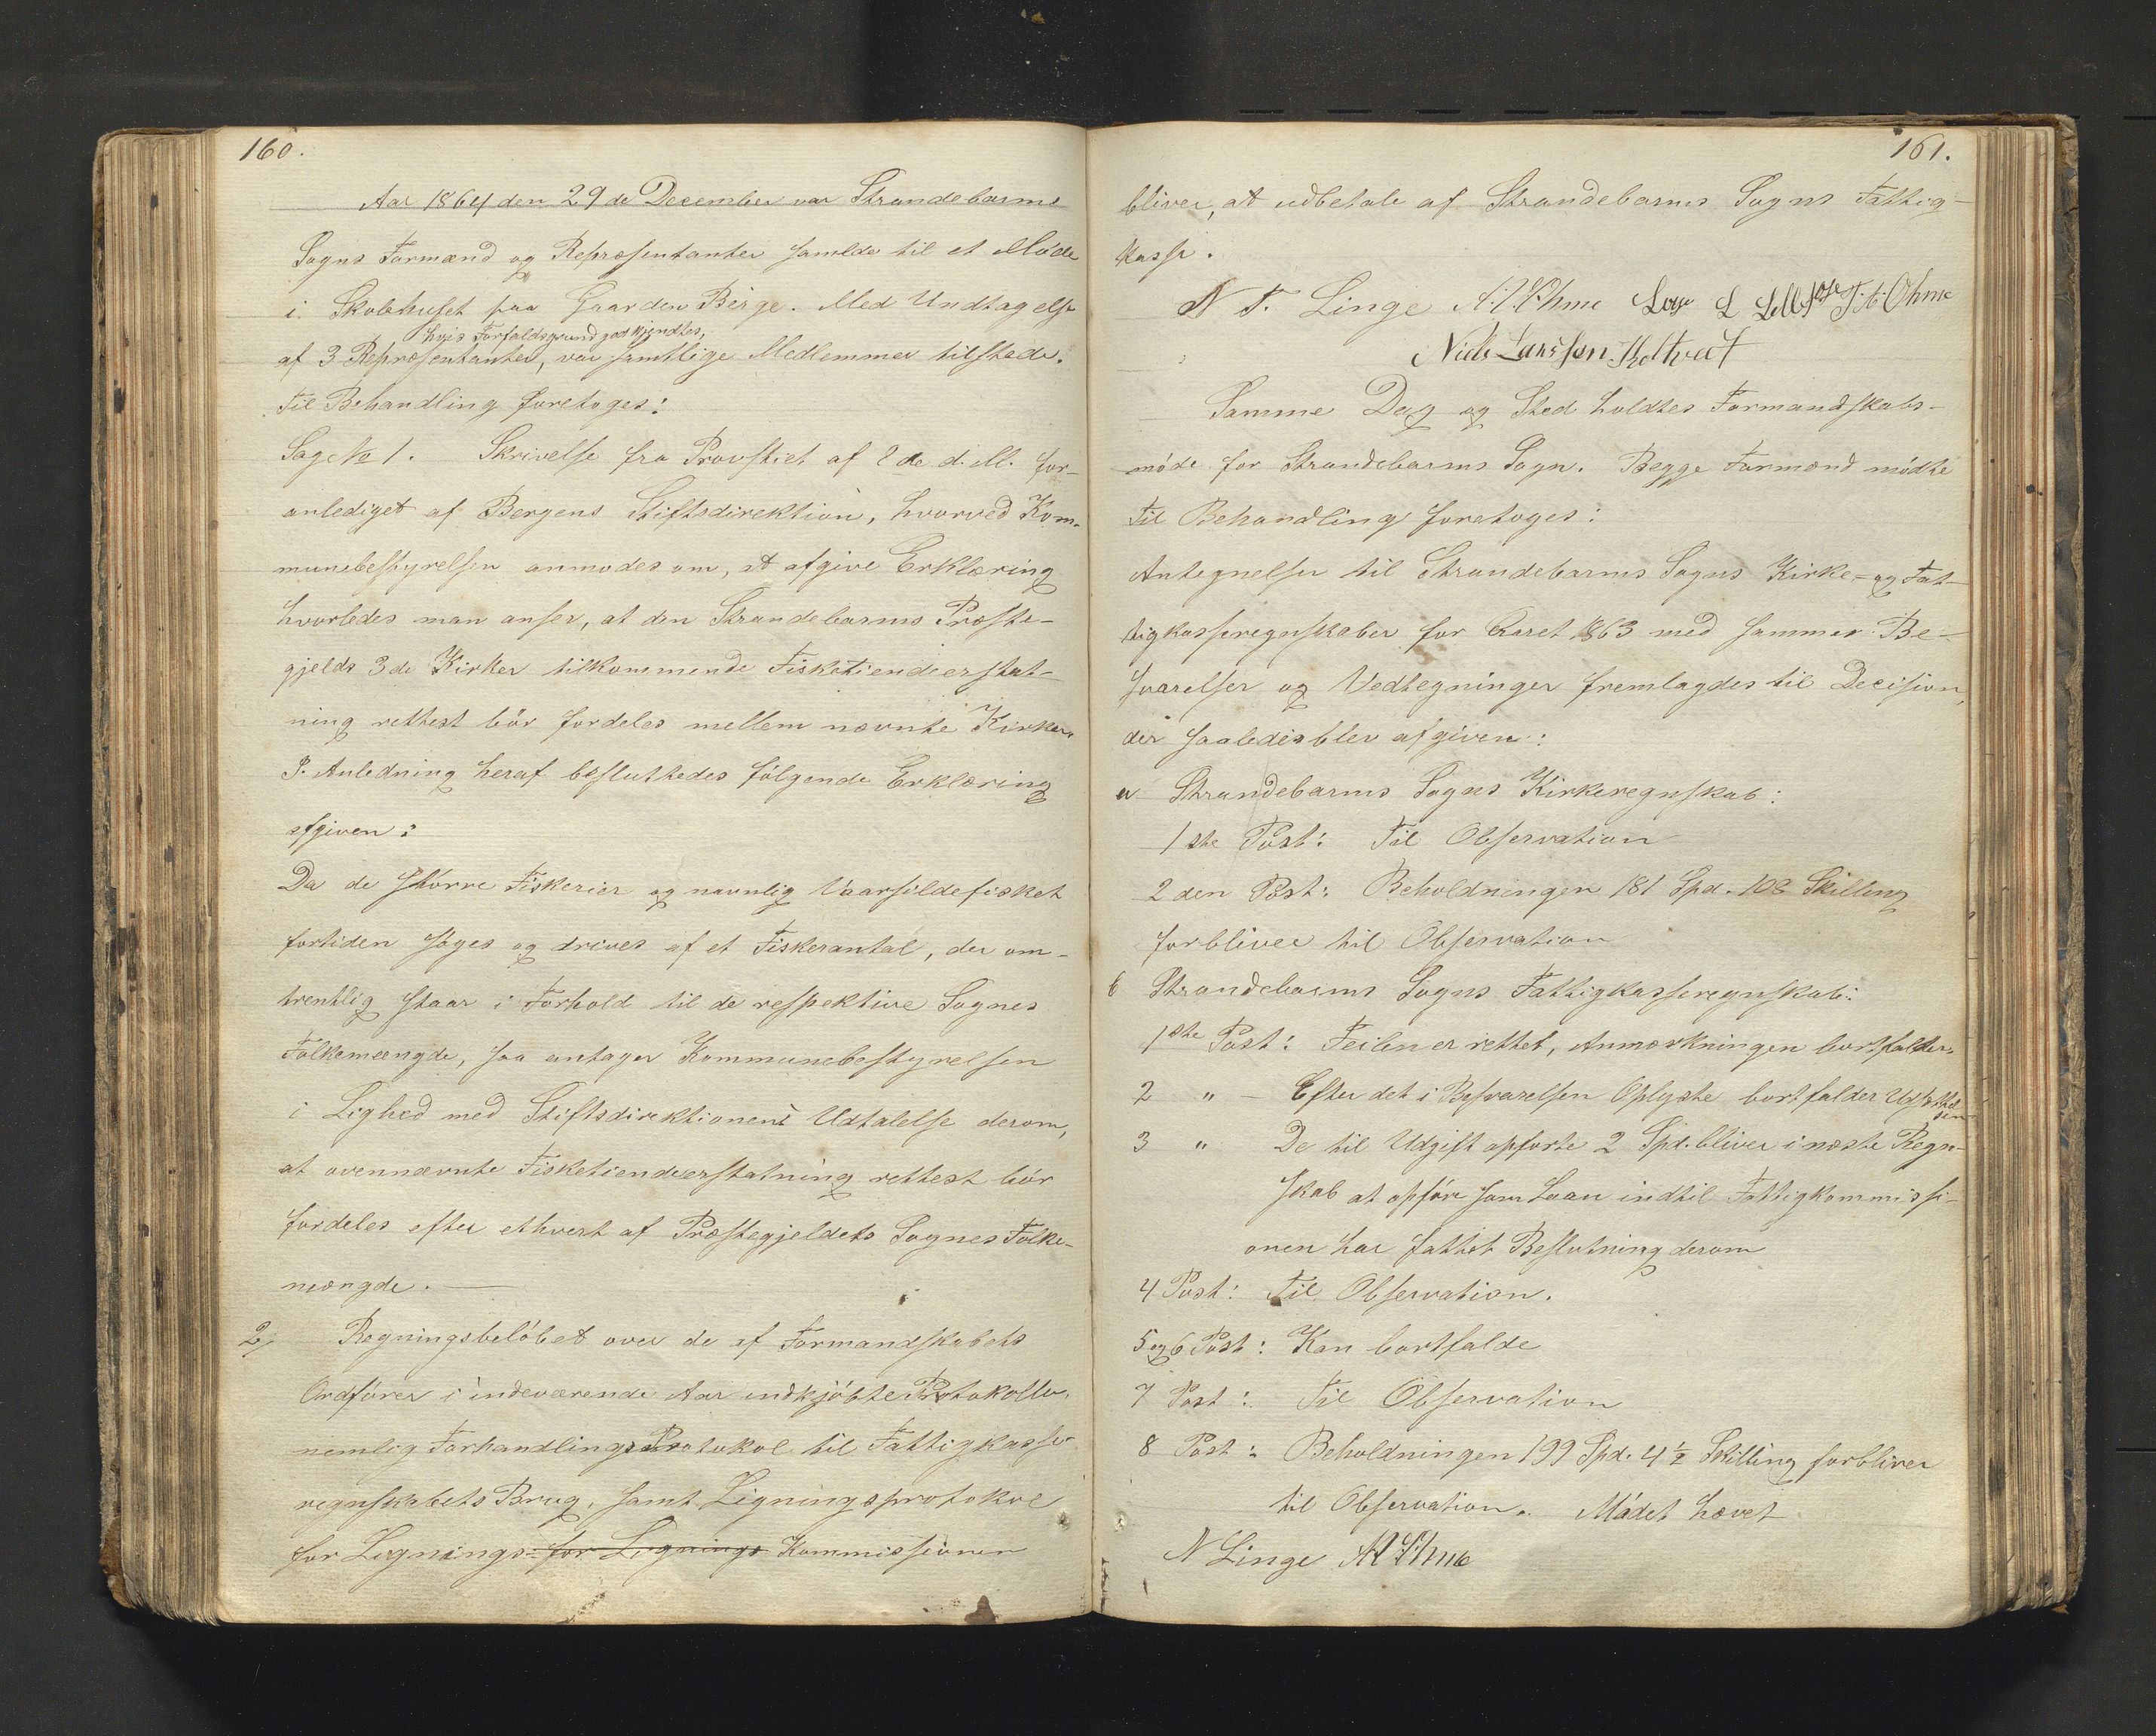 160.
Aar 1864 den 29de December var Strandebarms
Sogns Formænd og Repræsentanter samlede til et Møde
i Skolehuset paa Gaarden Berge. Med Undtagelse
hvis Forfaldsgrund godkjendtes,
af 3 Repræsentanter, var samtlige Medlemmer tilstede.
Til Behandling foretoges:
Sag No 1. Skrivelse fra Provstiet af 2de d. M. for-
anlediget af Bergens Stiftsdirektion, hvorved Kom-
munebestyrelsen anmodes om, at afgive Erklæring
hvorledes man anser, at den Strandebarms Præste-
gjelds 3de Kirker tilkommende Fisketiendeerstat-
ning rettest bør fordeles mellem nævnte Kirker.
I Anledning heraf besluttedes følgende Erklæring
afgiven:
Da de større Fiskerier og navnlig Vaarsildefisket
fortiden søges og drives af et Fiskerantal, der om-
trentlig staar i Forhold til de respektive Sognes
Folkemængde, saa antager Kommunebestyrelsen
i Lighed med Stiftsdirektionens Udtalelse derom,
at ovennævnte Fisketiendeerstatning rettest bør
fordeles efter ethvert af Præstegjeldets Sognes Folke-
mængde.
2/ Regningsbeløbet over de af Formandskabets
Ordfører i indeværende Aar indkjøbte Protokoller,
nemlig Forhandlingsprotokol til Fattigkasse-
regnskabets Brug, samt Ligningsprotokol
for Lignings- for Lignings Kommissionen
161.
bliver, at udbetale af Strandebarms Sogns Fattig-
kasse.
N T. Linge A. Ohme Lars L T. A. Ohme
Niels Larssen Holtveet
Samme Dag og Sted holdtes Formandskabs-
møde for Strandebarms Sogn. Begge Formænd mødte
Til Behandling foretoges:
Antegnelser til Strandebarms Sogns Kirke- og Fat-
tigkasseregnskaber for Aaret 1863 med sammes Be-
svarelser og Vedtegninger fremlagdes til Decision,
der saaledes blev afgiven:
a Strandebarms Sogns Kirkeregnskab:
1ste Post: Til Observation
2den Post: Beholdningen 181 Spd. 108 Skilling
forbliver til Observation
b Strandebarms Sogns Fattigkasseregnskab:
1ste Post: Feilen er rettet, Anmærkningen bortfalder.
2 " – Efter det i Besvarelsen Oplyste bortfalder Udsættel
sen
3 " De til Udgift opførte 2 Spd. bliver i næste Regn-
skab at opføre som Laan indtil Fattigkommissi-
onen har fattet Beslutning derom
4 Post: Til Observation.
5 og 6 Post: Kan bortfalde
7 Post: Til Observation
8 Post: Beholdningen 199 Spd. 4 ½ Skilling forbliver
til Observation. Mødet hævet
N Linge A Ohme